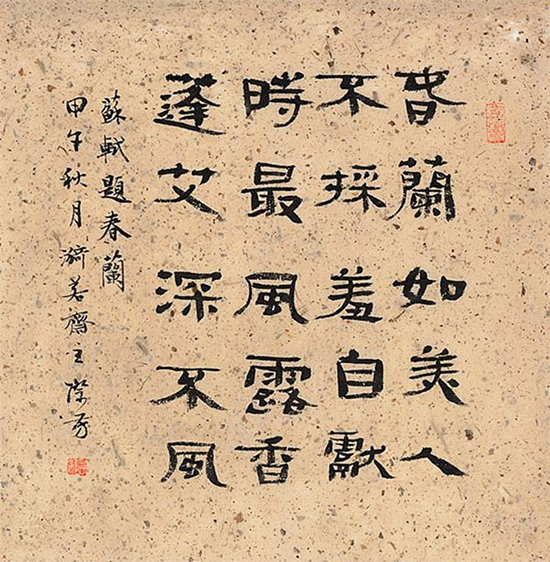 旾蘭如美人
不採羞自獻
時最風露香
蓬艾深不風
蘇軾題春蘭
甲午秋月漪若齋主